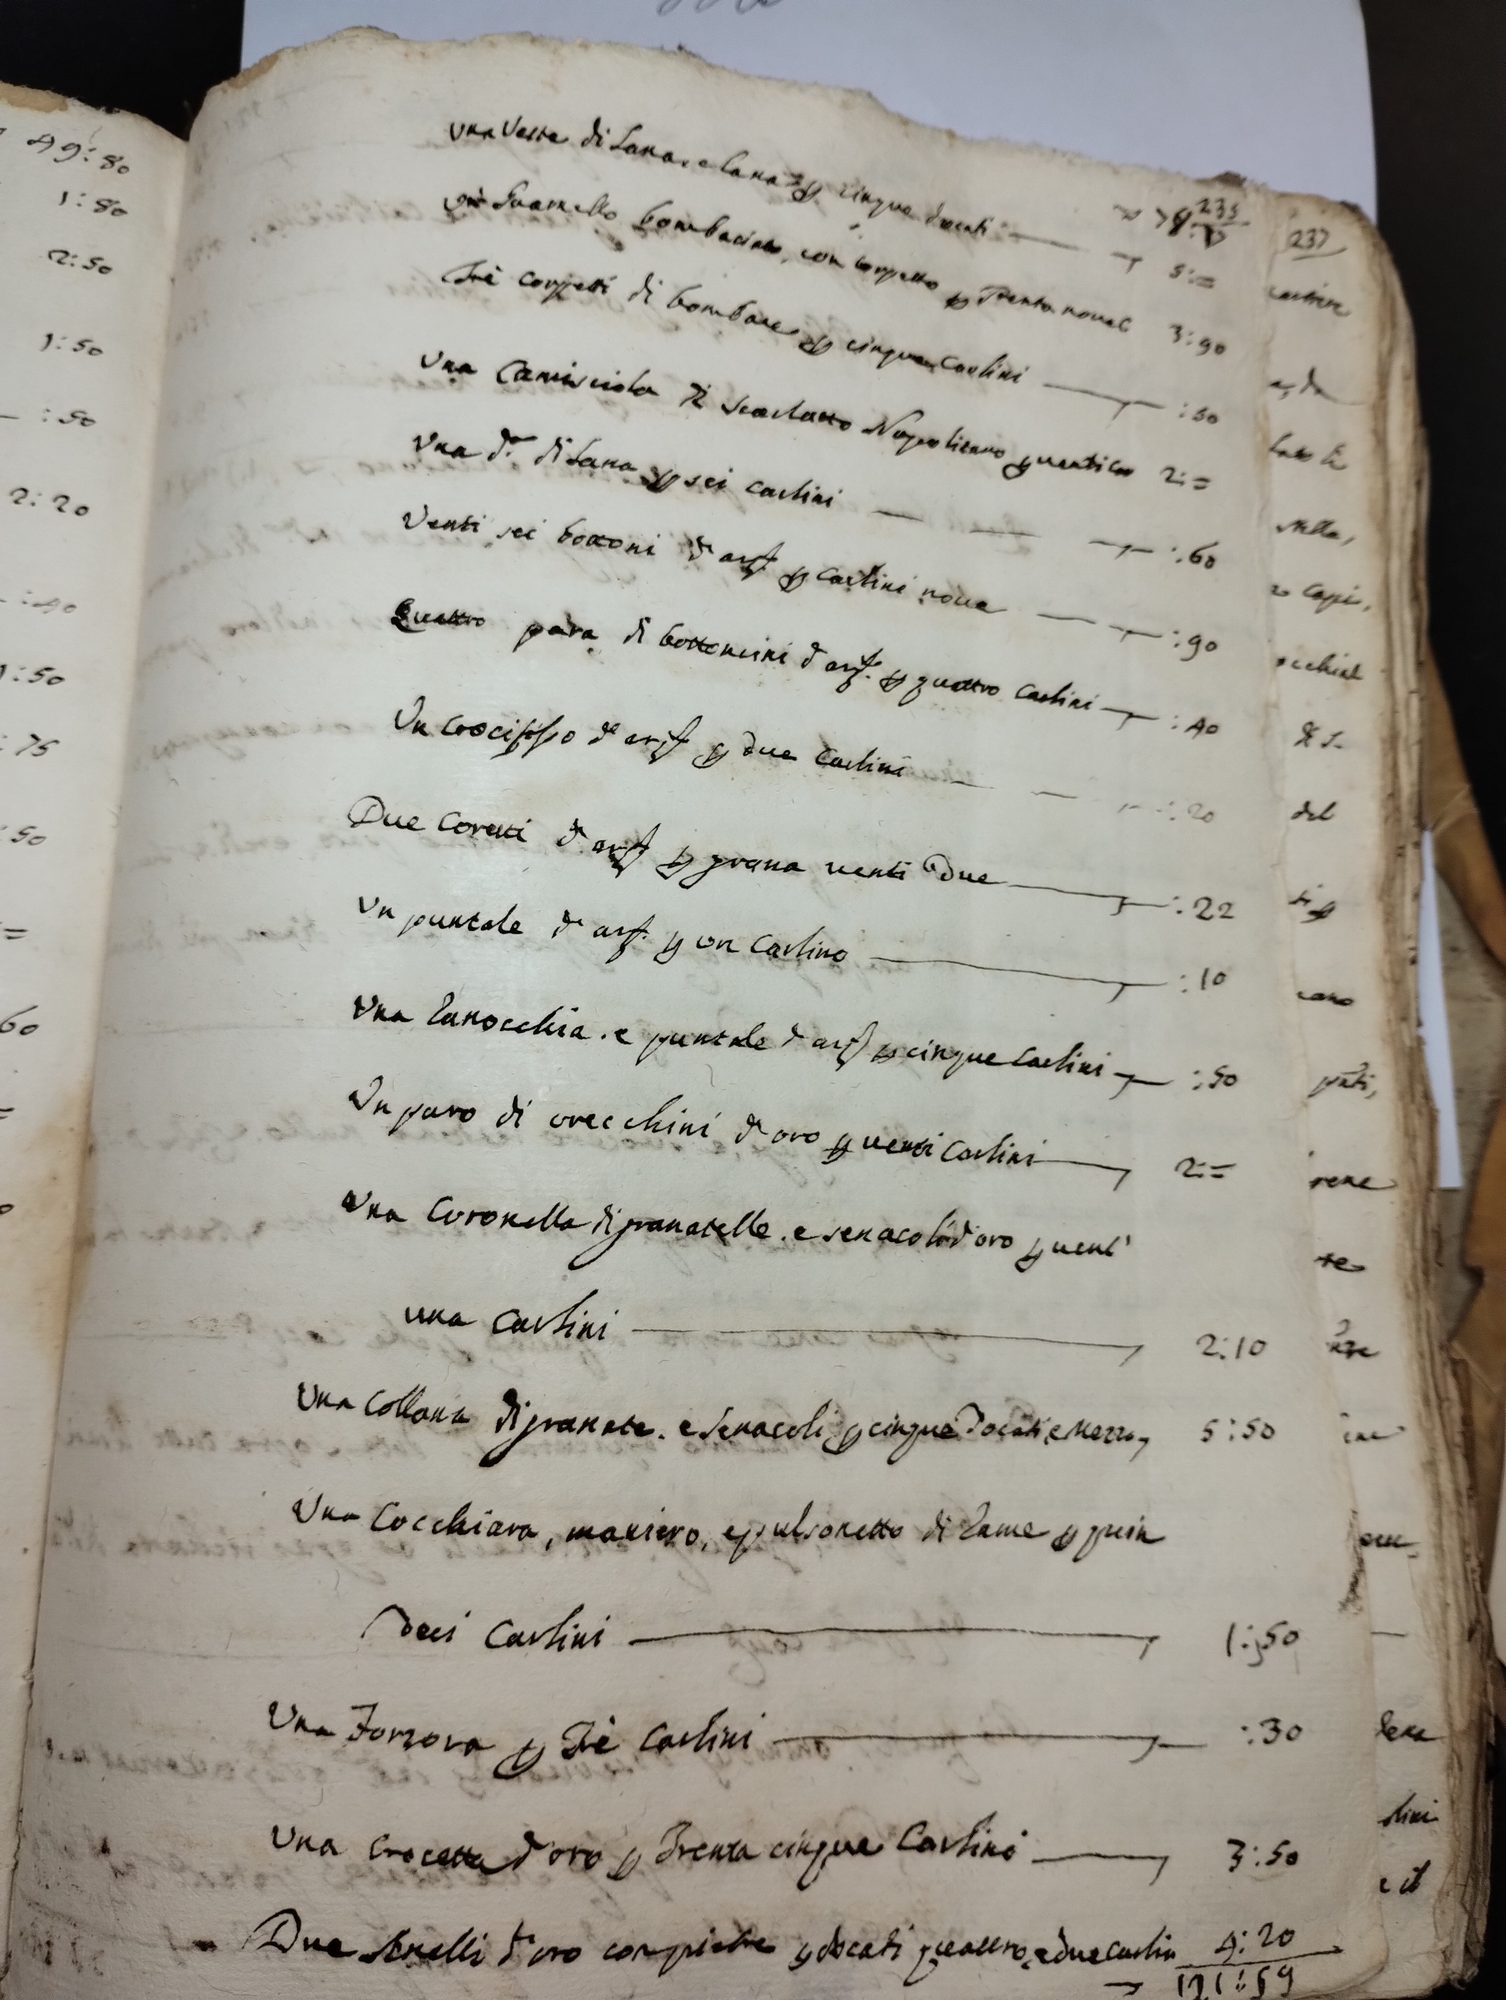 49:80
1:80
2:50
1:50
:50
2:20
:40
1:50
:75
:50
=
60
235
Una Veste di Lana, e lana p cinque docati 5:=
Un Guarnello bombacino, con corpetto p Trenta novel 3:90
Trè corpetti di bombace p cinque Carlini :50
Una Camisciola di scarlatto Napolitano p venti Car 2:=
Una d.ª di Lana p sei carlini :60
Venti sei bottoni d'arg.º p Carlini nove :90
Quattro para di bottoncini d'arg.º p quattro Carlini :40
Un Crocifisso d'arg.º p due Carlini :20
Due Coretti d'arg.º p grana venti due :22
Un puntale d'arg.º p un Carlino :10
Una Zanocchia. e puntale d'arg.º p cinque Carlini :50
Un paro di orecchini d'oro p venti Carlini 2:=
Una Coronella di granatelle. e senacoli d'oro p vent'
una Carlini 2:10
Una Collana di granate. e Senacoli p cinque Docati, e Mezzo 5:50
Una Cocchiara, maniero, e pulsonetto di rame p quin
deci Carlini 1:50
Una Forzora p Trè Carlini :30
Una Crocetta d'oro p Trenta cinque Carlini 3:50
Due Anelli d'oro con pietre p docati quattro, e due Carlin 4:20
121:59
237
del
cano
rene
te
e il